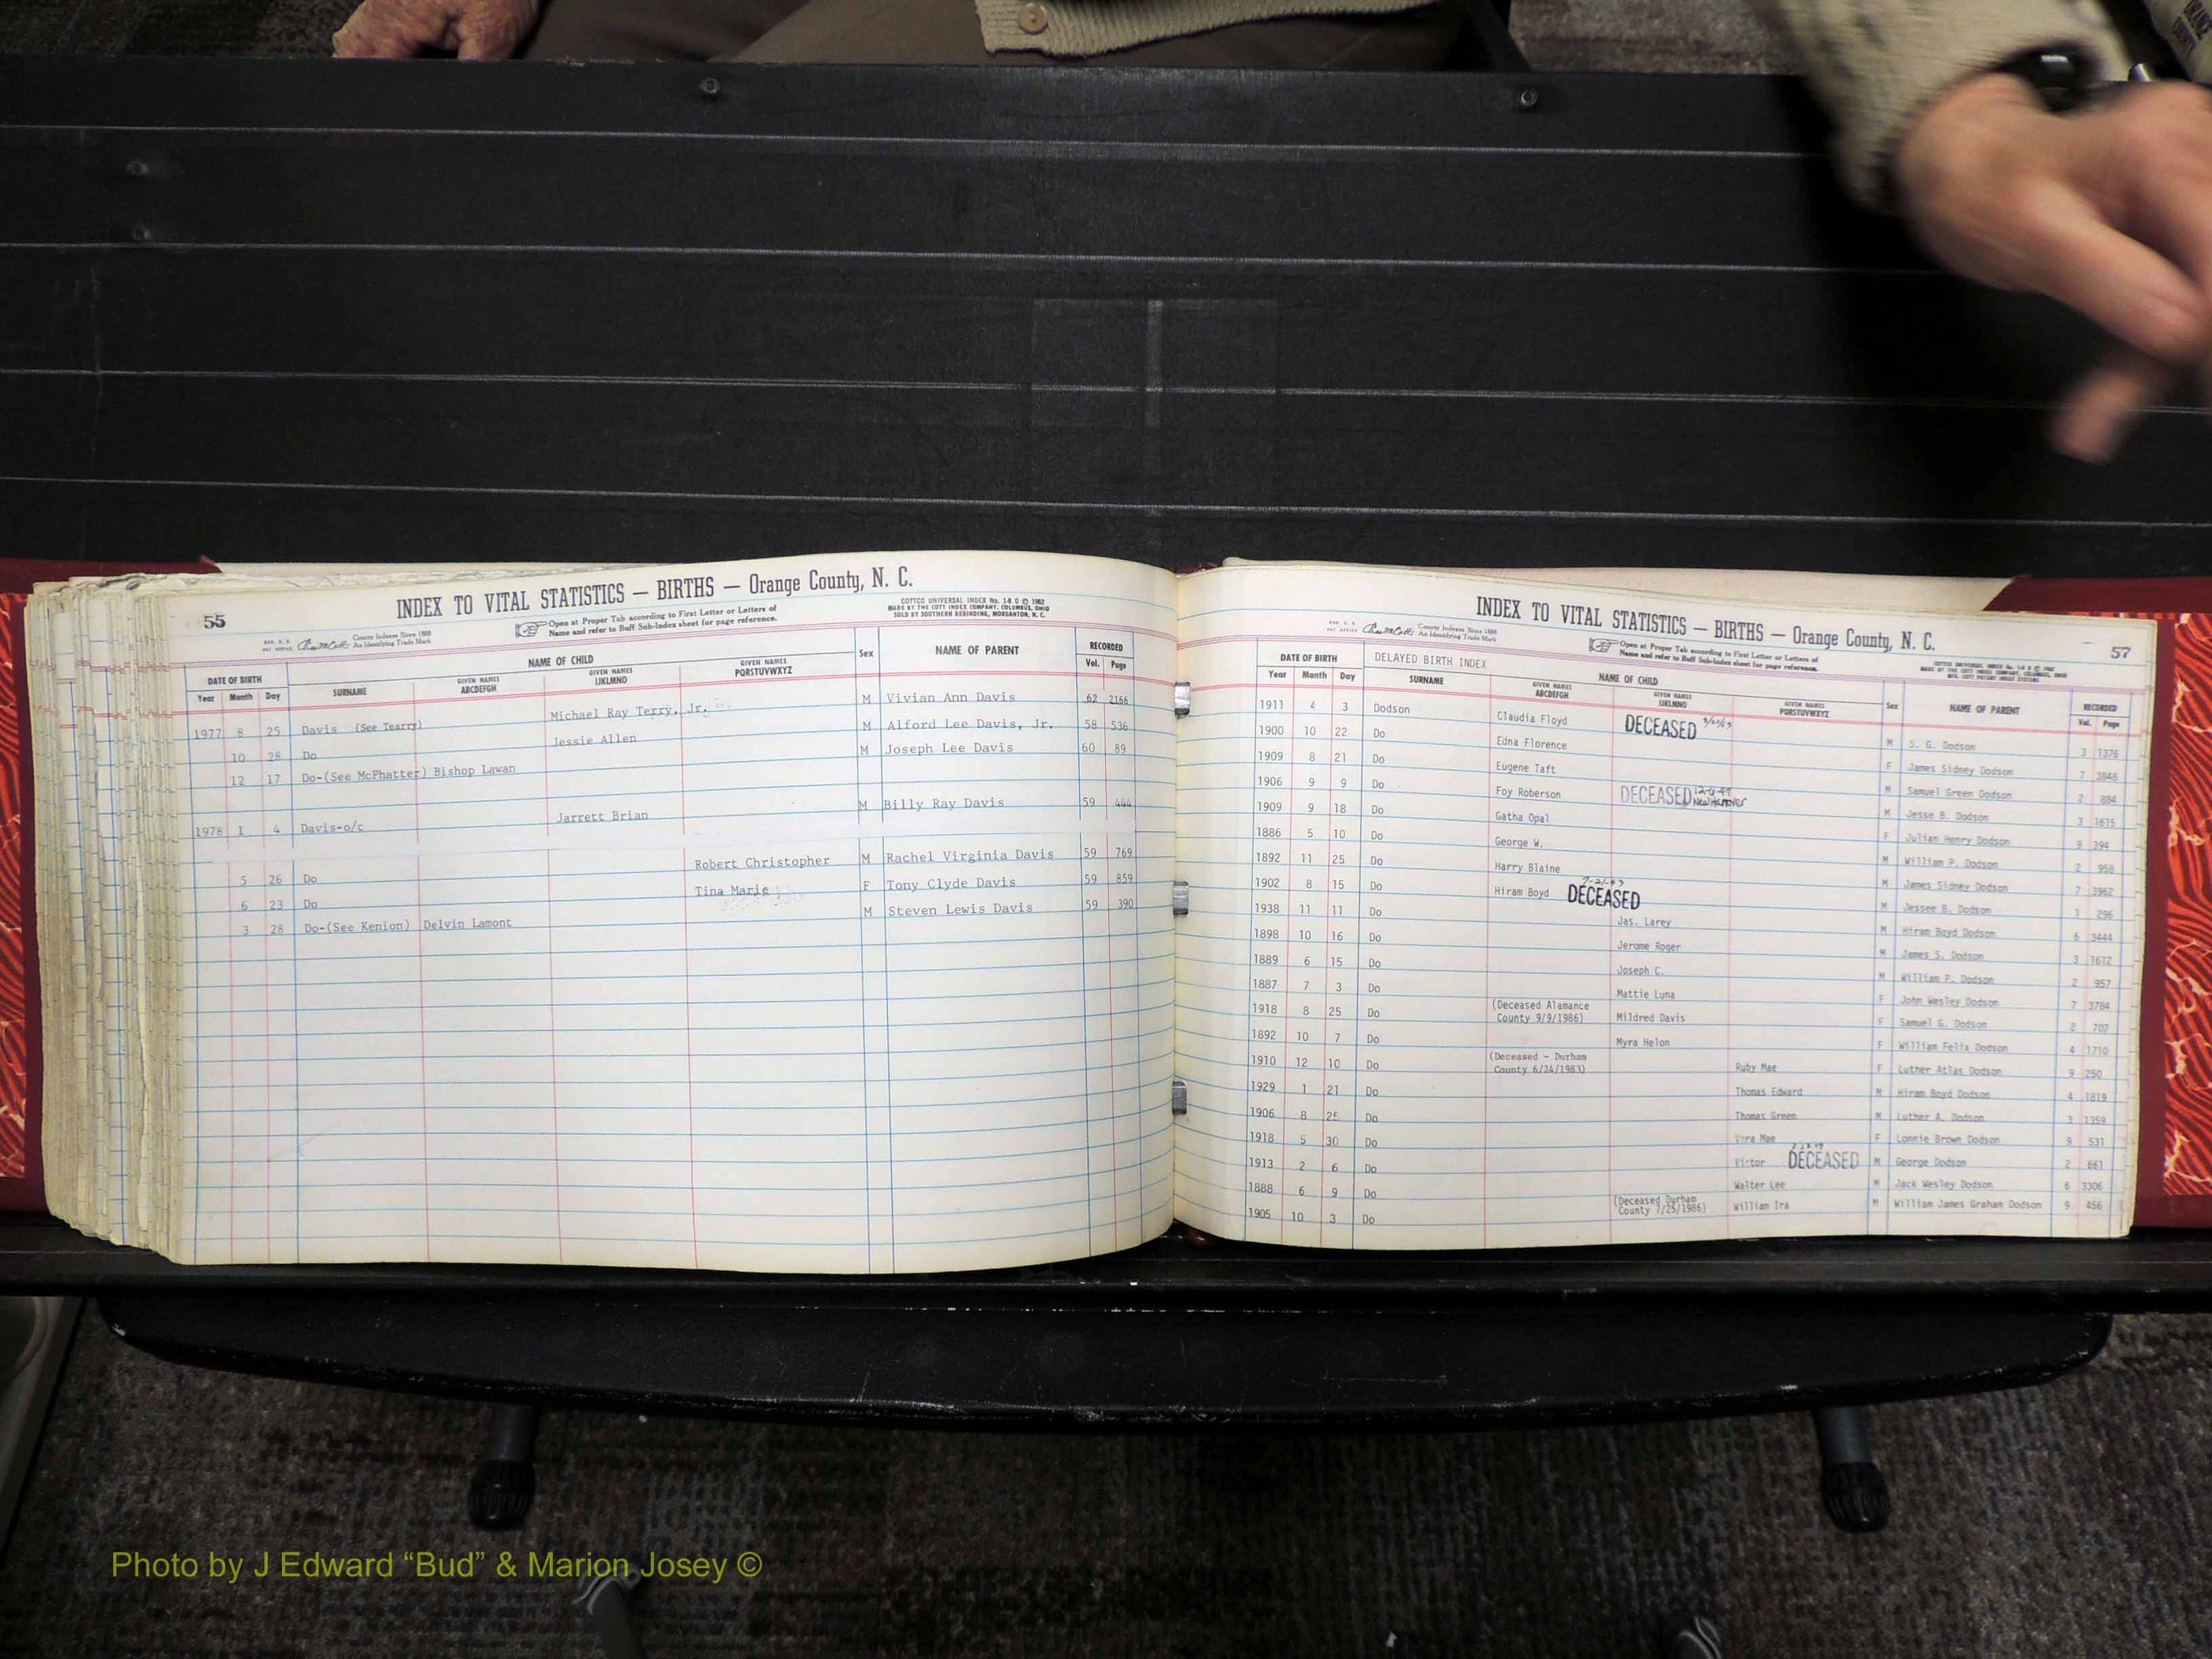 55
INDEX TO VITAL STATISTICS — BIRTHS — Orange County, N. C.
County Indexes Since 1888
An Identifying Trade Mark
Open at Proper Tab according to First Letter or Letters of
Name and refer to Buff Sub-Index sheet for page reference.
COTTCO UNIVERSAL INDEX No. 1-8 D © 1962
MADE BY THE COTT INDEX COMPANY, COLUMBUS, OHIO
SOLD BY SOUTHERN REBINDING, MORGANTON, N. C.
DATE OF BIRTH NAME OF CHILD Sex NAME OF PARENT RECORDED
Year Month Day SURNAME GIVEN NAMES ABCDEFGH GIVEN NAMES IJKLMNO GIVEN NAMES PQRSTUVWXYZ Vol. Page
1977 8 25 Davis (See Tearry) Michael Ray Terry, Jr. M Vivian Ann Davis 62 2166
10 28 Do Jessie Allen M Alford Lee Davis, Jr. 58 536
12 17 Do-(See McPhatter) Bishop Lawan M Joseph Lee Davis 60 89
1978 1 4 Davis-o/c Jarrett Brian M Billy Ray Davis 59 444
5 26 Do Robert Christopher M Rachel Virginia Davis 59 769
6 23 Do Tina Marie F Tony Clyde Davis 59 859
3 28 Do-(See Kenion) Delvin Lamont M Steven Lewis Davis 59 390
INDEX TO VITAL STATISTICS — BIRTHS — Orange County, N. C.
57
County Indexes Since 1888
An Identifying Trade Mark
Open at Proper Tab according to First Letter or Letters of
Name and refer to Buff Sub-Index sheet for page reference.
DATE OF BIRTH DELAYED BIRTH INDEX NAME OF CHILD Sex NAME OF PARENT RECORDED
Year Month Day SURNAME GIVEN NAMES ABCDEFGH GIVEN NAMES IJKLMNO GIVEN NAMES PQRSTUVWXYZ Vol. Page
1911 4 3 Dodson Claudia Floyd DECEASED M S. G. Dodson 3 1376
1900 10 22 Do Edna Florence F James Sidney Dodson 7 3848
1909 8 21 Do Eugene Taft M Samuel Green Dodson 2 884
1906 9 9 Do Foy Roberson DECEASED 12-6-97 New Hanover M Jesse B. Dodson 3 1615
1909 9 18 Do Gatha Opal F Julian Henry Dodson 9 394
1886 5 10 Do George W. M William P. Dodson 2 958
1892 11 25 Do Harry Blaine M James Sidney Dodson 7 3962
1902 8 15 Do Hiram Boyd DECEASED M Jessee B. Dodson 1 296
1938 11 11 Do Jas. Larey M Hiram Boyd Dodson 6 3444
1898 10 16 Do Jerome Roger M James S. Dodson 3 1612
1889 6 15 Do Joseph C. M William P. Dodson 2 957
1887 7 3 Do Mattie Luna F John Wesley Dodson 7 3784
1918 8 25 Do (Deceased Alamance County 9/9/1986) Mildred Davis F Samuel G. Dodson 2 707
1892 10 7 Do Myra Helon F William Felix Dodson 4 1710
1910 12 10 Do (Deceased - Durham County 6/24/1983) Ruby Mae F Luther Atlas Dodson 9 250
1929 1 21 Do Thomas Edward M Hiram Boyd Dodson 4 1819
1906 8 25 Do Thomas Green M Luther A. Dodson 3 1359
1918 5 30 Do Vera Mae F Lonnie Brown Dodson 9 531
1913 2 6 Do Victor DECEASED M George Dodson 2 661
1888 6 9 Do Walter Lee M Jack Wesley Dodson 6 3306
1905 10 3 Do (Deceased Durham County 7/25/1986) William Ira M William James Graham Dodson 9 456
Photo by J Edward “Bud” & Marion Josey ©